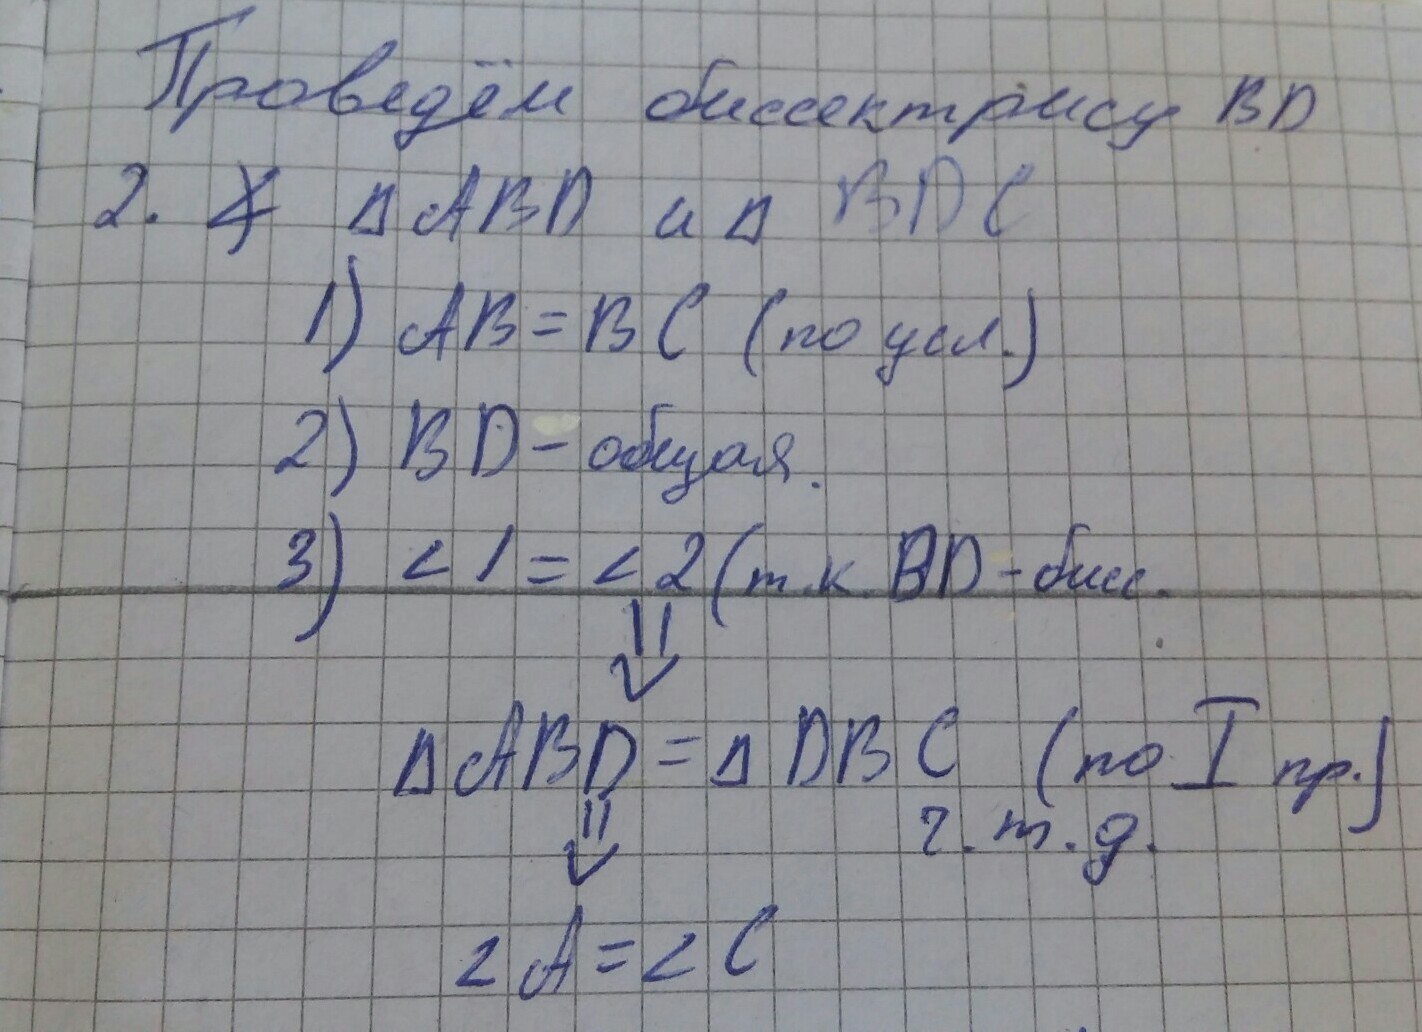 Проведём биссектрису BD
2. Δ ABD и Δ BDC
1) AB = BC (по усл.)
2) BD - общая.
3) < 1 = < 2 (т.к. BD - бисс.
⇓
Δ ABD = Δ DBC (по I пр.)
⇓ ч.т.д.
< A = < C